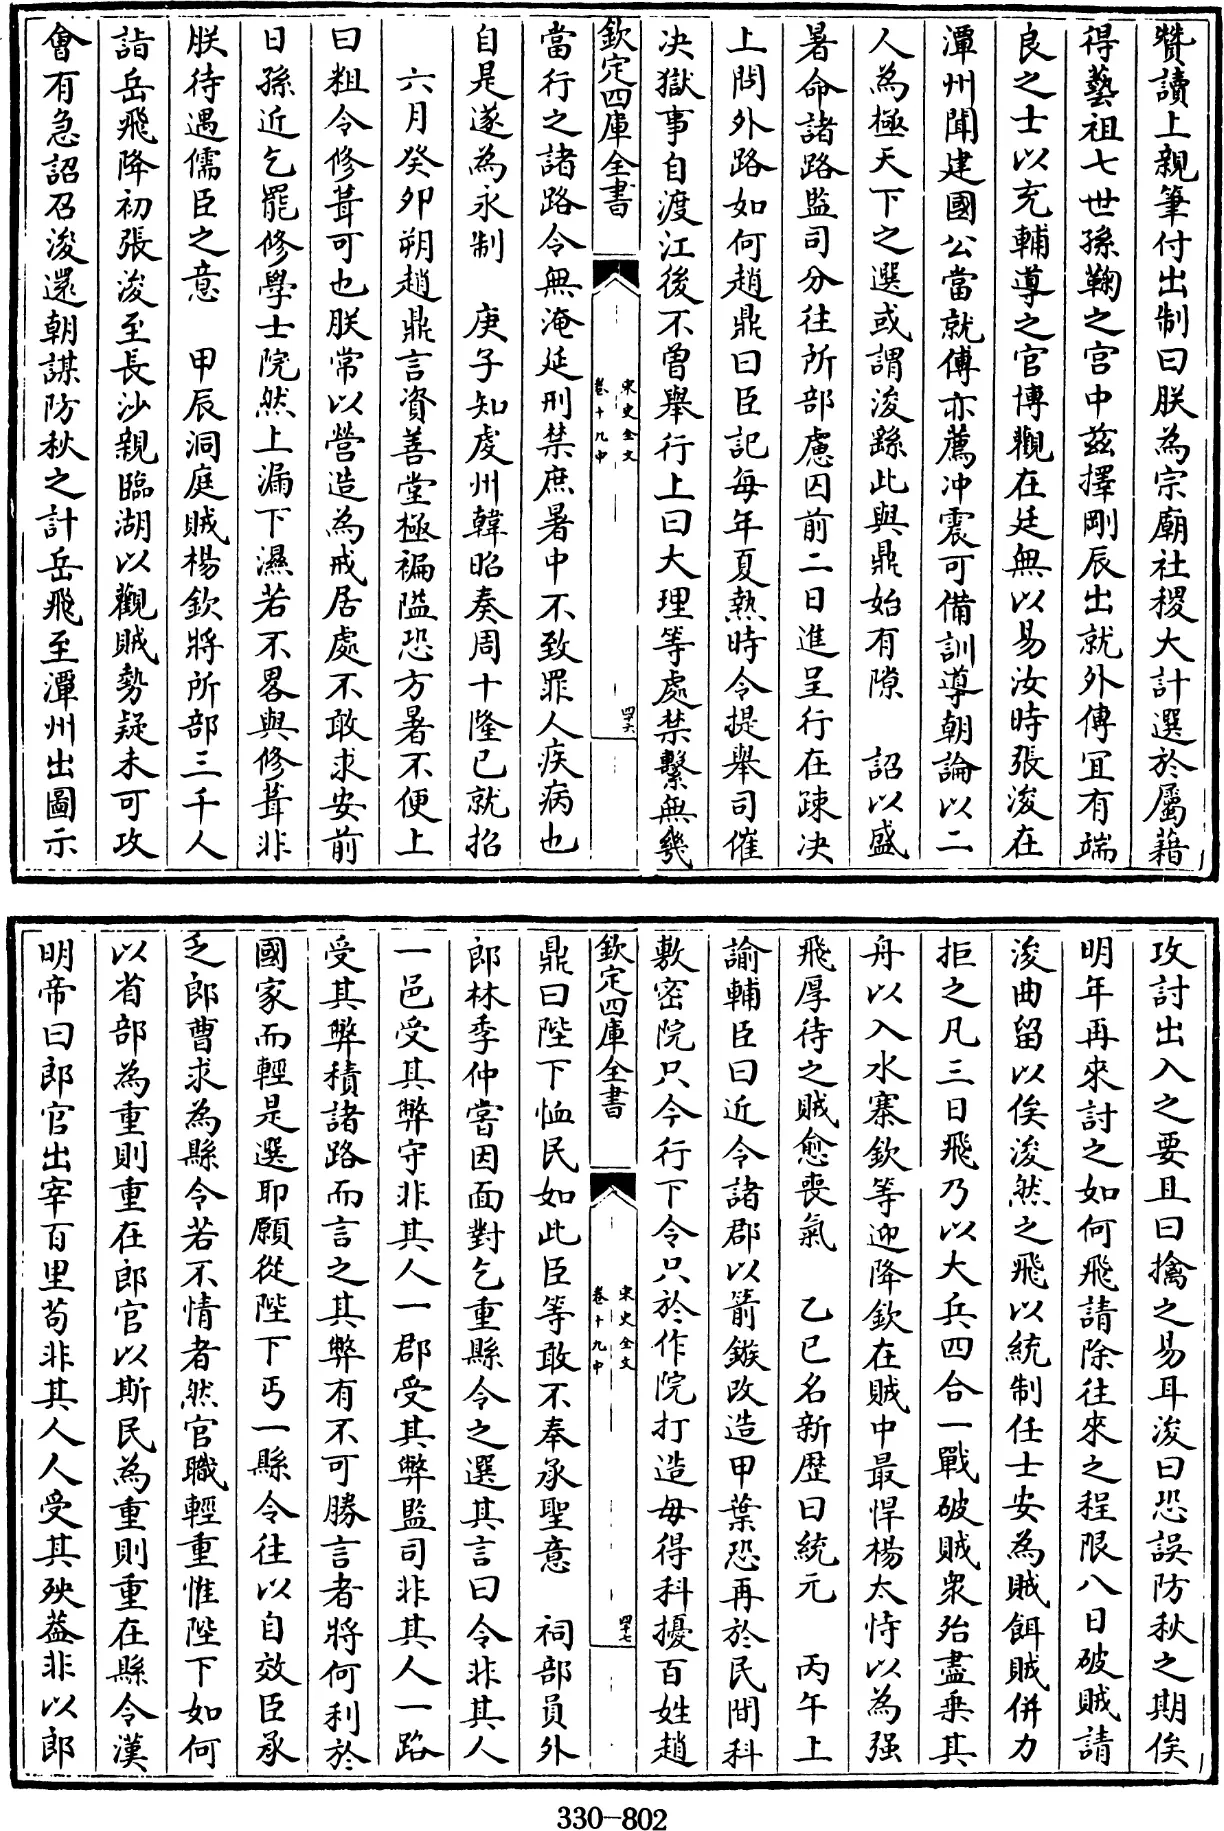 贊讀上親筆付出制曰朕為宗廟社稷大計選於屬藉
得藝祖七世孫鞠之宫中兹擇剛辰出就外傅宜有端
良之士以充輔導之官博觀在廷無以易汝時張浚在
潭州聞建國公當就傅亦薦冲震可備訓導朝論以二
人為極天下之選或謂浚繇此與鼎始有隙　詔以盛
暑命諸路監司分往所部慮囚前二日進呈行在疎決
上問外路如何趙鼎曰臣記每年夏熱時令提舉司催
決獄事自渡江後不曾舉行上曰大理等處禁繫無幾
欽定四庫全書　宋史全文　卷十九中　四十六
當行之諸路令無淹延刑禁庶暑中不致罪人疾病也
自是遂為永制　庚子知虔州韓昭奏周十隆已就招
六月癸卯朔趙鼎言資善堂極褊隘恐方暑不便上
曰粗令修葺可也朕常以營造為戒居處不敢求安前
日孫近乞罷修學士院然上漏下濕若不畧與修葺非
朕待遇儒臣之意　甲辰洞庭賊楊欽將所部三千人
詣岳飛降初張浚至長沙親臨湖以觀賊勢疑未可攻
會有急詔召浚還朝謀防秋之計岳飛至潭州出圖示
攻討出入之要且曰擒之易耳浚曰恐誤防秋之期俟
明年再來討之如何飛請除往來之程限八日破賊請
浚曲留以俟浚然之飛以統制任士安為賊餌賊併力
拒之凡三日飛乃以大兵四合一戰破賊衆殆盡乗其
舟以入水寨欽等迎降欽在賊中最悍楊太恃以為强
飛厚待之賊愈喪氣　乙巳名新歴曰統元　丙午上
諭輔臣曰近令諸郡以箭鏃改造甲葉恐再於民間科
敷密院只今行下令只於作院打造毋得科擾百姓趙
欽定四庫全書　宋史全文　卷十九中　四十七
鼎曰陛下恤民如此臣等敢不奉承聖意　祠部員外
郎林季仲嘗因面對乞重縣令之選其言曰令非其人
一邑受其弊守非其人一郡受其弊監司非其人一路
受其弊積諸路而言之其弊有不可勝言者將何利於
國家而輕是選耶願從陛下丐一縣令往以自效臣承
乏郎曹求為縣令若不情者然官職輕重惟陛下如何
以省部為重則重在郎官以斯民為重則重在縣令漢
明帝曰郎官出宰百里苟非其人人受其殃葢非以郎
330-802